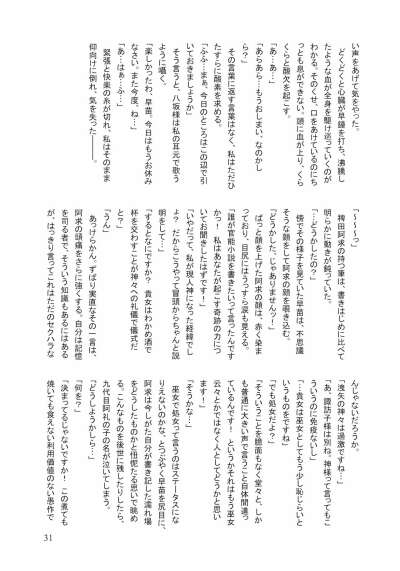 い声をあげて気をやった。
どくどくと心臓が早鐘を打ち、沸騰し
たような血が全身を駆け巡っていくのが
わかる。そのくせ、口をあけているのにち
っとも息ができない。頭に血が上り、くら
くらと酸欠を起こす。
「あ…あ…」
「あらあら…もうおしまい、なのかし
ら？」
その言葉に返す言葉はなく、私はただひ
たすらに酸素を求める。
「ふふ…まぁ、今日のところはこの辺で引
いておきましょうか」
そう言うと、八坂様は私の耳元で歌う
ように囁く。
「楽しかったわ、早苗。今日はもうお休み
なさい。また今度、ね…」
「あ…はぁ…ふ…」
緊張と快楽の糸が切れ、私はそのまま
仰向けに倒れ、気を失った――。
「～～～っ」
稗田阿求の持つ筆は、書きはじめに比べて
明らかに動きが鈍っていた。
「…どうかしたの？」
傍でその様子を見ていた早苗は、不思議
そうな顔をして阿求の顔を覗き込む。
「どうかした、じゃありませんっ！」
ばっと顔を上げた阿求の顔は、赤く染ま
っており、目尻にはうっすら涙も見える。
「誰が官能小説を書きたいって言ったんです
かっ！　私はあなたが起こす奇跡の力につ
いてお聞きしたはずです！」
「いやだって、私が現人神になった経緯でし
ょ？　だからこうやって冒頭からちゃんと説
明をして…」
「するとなにですか？　貴女はわかめ酒で
杯を交わすことが神々への礼儀で儀式だ
と？」
「うん」
あっけらかん、ずばり実直なその一言は、
阿求の頭痛をさらに強くする。自分は記憶
を司る者で、そういう知識もあるにはある
が、はっきり言ってこれはただのセクハラな
んじゃないだろうか。
「洩矢の神々は過激ですね…」
「あ、諏訪子様は別ね。神様って言ってもこ
ういうのに免疫ないし」
「…貴女は巫女としてもう少し恥じらいと
いうものをですね」
「でも処女だよ？」
「そういうことを臆面もなく堂々と、しか
も普通に大きい声で言うこと自体間違っ
ているんです！　というかそれはもう巫女
云々とかではなく人としてどうかと思い
ます！」
「そうかな…」
巫女で処女って言うのはステータスにな
りえないのかな、とつぶやく早苗を尻目に、
阿求は今しがた自分が書き記した濡れ場
をどうしたものかと忸怩たる思いで眺め
る。こんなものを後世に残したりしたら、
九代目阿礼の子の名が泣いてしまう。
「どうしようかしら…」
「何を？」
「決まってるじゃないですか！　この煮ても
焼いても食えない利用価値のない愚作で
31